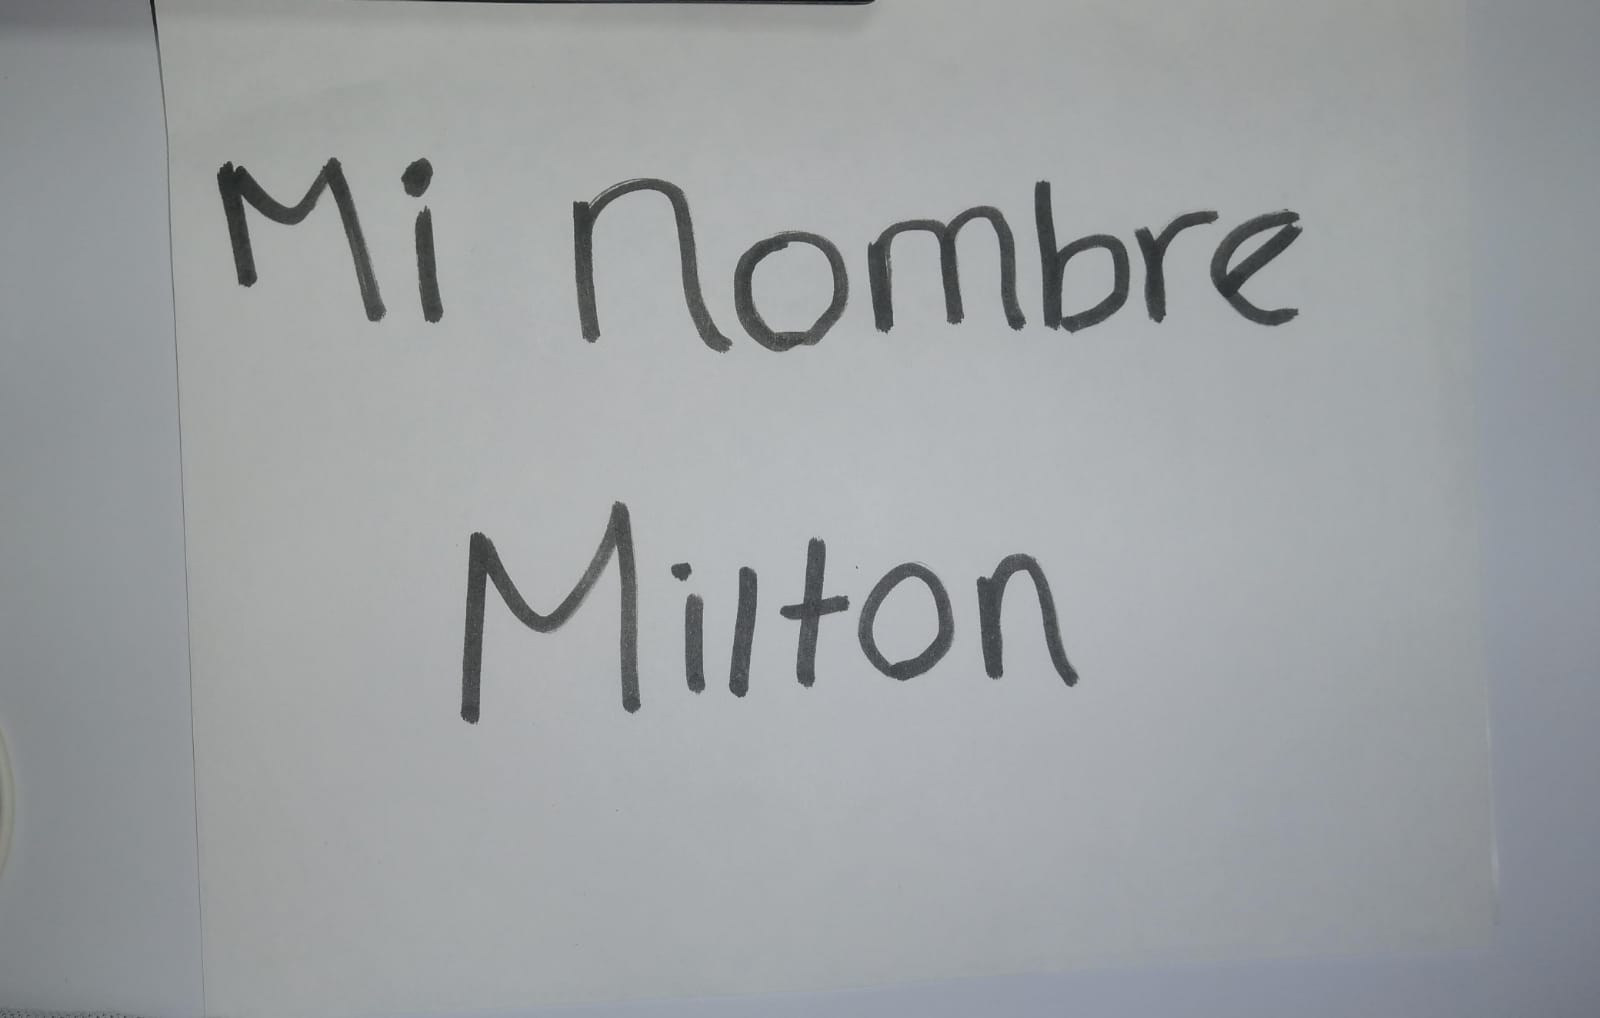 Mi nombre
Milton